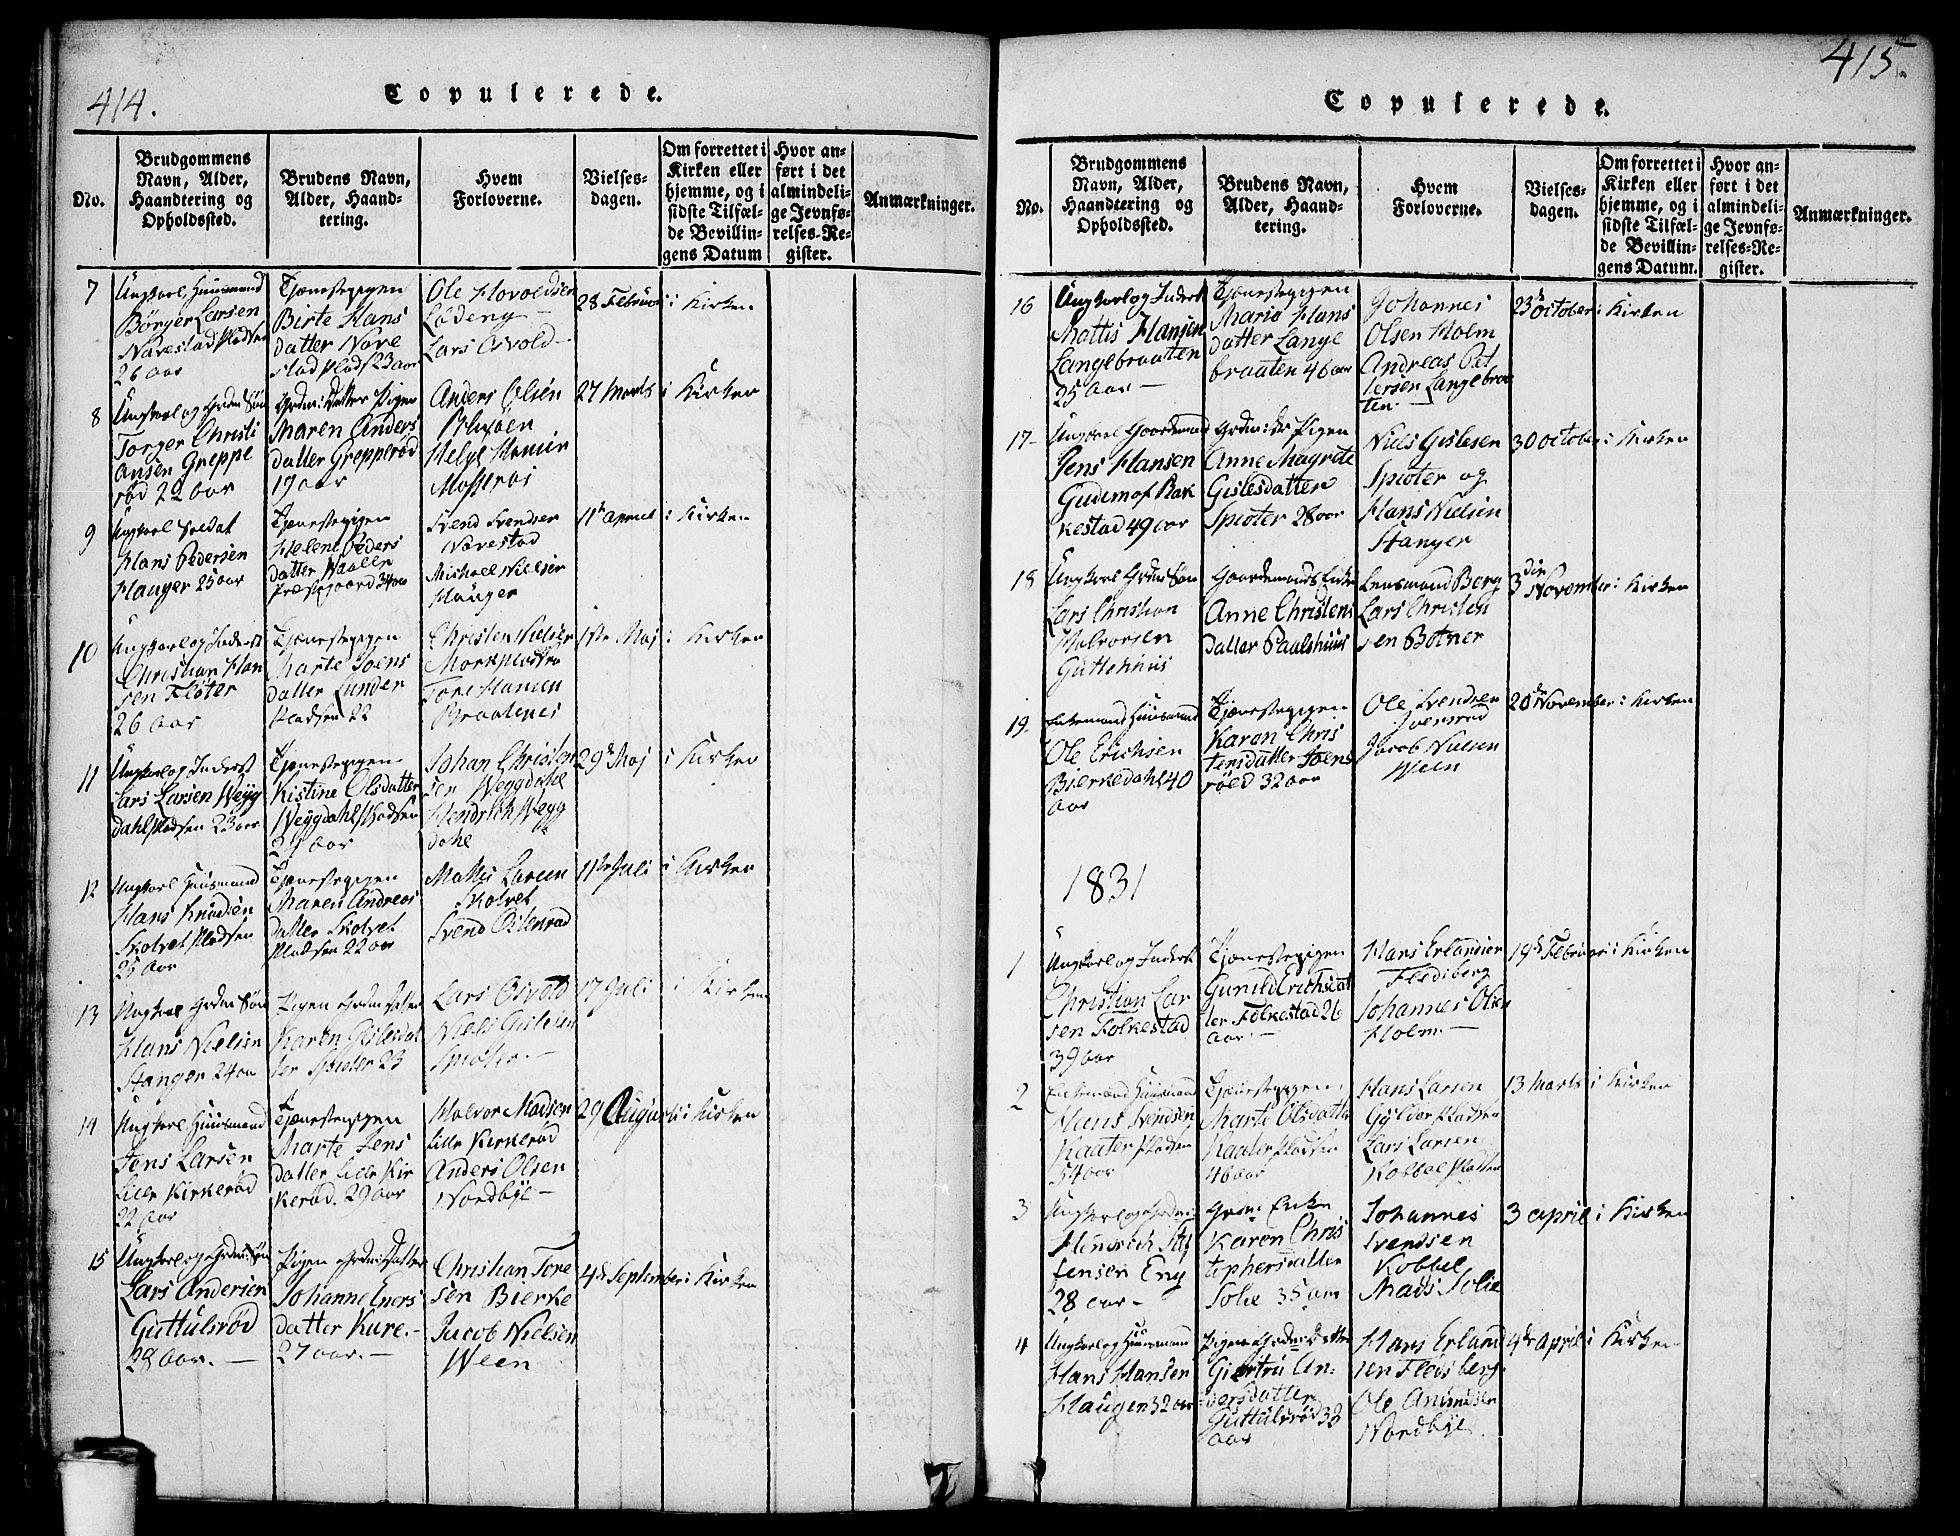 414.
Copulerede.
No.
Brudgommens
Navn, Alder,
Haandtering og
Opholdssted.
Brudens Navn,
Alder, Haand-
tering.
Hvem
Forloverne.
Vielses-
dagen.
Om forrettet i
Kirken eller
hjemme, og i
sidste Tilfæl-
de Bevillin-
gens Datum
Hvor an-
ført i det
almindeli-
ge Jevnfø-
relses-Re-
gister.
Anmærkninger.
7
Ungkarl Huusmand
Børger Larsen
Navestad Pladsen
26 aar
Tjenestepigen
Birte Hans
datter Nave
stad Plads 23 aar
Ole Havoldsen
Lødeng
Lars Osvold
28 Februar
i Kirken
8
Ungkarl og Grdm: Søn
Torger Christi
ansen Greppe
rød 22 aar
Grdm: Datter Pigen
Maren Anders
datter Grepperød
19 aar
Anders Olsen
Helge Hansen
Mosserøs
27 Marts
i Kirken
9
Ungkarl Soldat
Hans Pedersen
Hauger 25 aar
Tjenestepigen
Helene Peders
datter Waaler
Præstegaard 34 aar
Svend Svendsen
Navestad
Michael Nielsen
Hauger
11te April
i Kirken
10
Ungkarl og Inderst
Christian Han
sen Fløter
26 aar
Tjenestepigen
Marte Joens
datter Lunder
Pladsen 22
Christen Nielsen
Mork Pladsen
Tore Hansen
Braatenes
1ste Maj
i Kirken
11
Ungkarl og Inderst
Lars Larsen Wegg
dahl Pladsen 23 aar
Tjenestepigen
Kistine Olsdatter
Weggdahl Pladsen
29 aar
Johan Christen
sen Weggdahl
Hendrich Wegg
dahl
29de Maj
i Kirken
12
Ungkarl Huusmand
Hans Knudsen
Skolvet Pladsen
25 aar
Tjenestepigen
Maren Andreas
datter Skolvet
Pladsen 22 aar
Mattis Larsen
Skolvet
Svend Ostenrød
11te Juli
i Kirken
13
Ungkarl Grdm Søn
Hans Nielsen
Stanger 24 aar
Pigen Grdm Datter
Karen Gislesdat
ter Spioter 23
Lars Osvold
Niels Gislesen
Spioter.
17 Juli
i Kirken
14
Ungkarl Huusmand
Jens Larsen
Lille Kirkerød
22 aar
Tjenestepigen
Marte Jens
datter Lille Kir
kerød. 29 aar
Halvor Madsen
Lille Kirkerød
Anders Olsen
Nordbye
29 August
i Kirken
15
Ungkarl og Grdm: Søn
Lars Andersen
Guttulsrød
28 aar.
Pigen Grdm: Datter
Johanne Eners
datter Kure.
27 aar.
Christian Tore
sen Bierke
Jacob Nielsen
Ween
4de September
i Kirken
415.
Copulerede.
No.
Brudgommens
Navn, Alder,
Haandtering og
Opholdssted.
Brudens Navn,
Alder, Haand-
tering.
Hvem
Forloverne.
Vielses-
dagen.
Om forrettet i
Kirken eller
hjemme, og i
sidste Tilfæl-
de Bevillin-
gens Datum.
Hvor an-
ført i det
almindeli-
ge Jevnfø-
relses-Re-
gister.
Anmærkninger.
16
Ungkarl og Inderst
Mattis Hansen
Langebraaten
25 aar
Tjenestepigen
Maria Hans
datter Lange
braaten 46 aar
Johannes
Olsen Holm
Andreas Pet
tersen Langebraa
ten
23de October
i Kirken
17
Ungkarl Gaardmand
Jens Hansen
Gudim af Rak
kestad 49 aar
Grdm: Dr Pigen
Anne Magrete
Gislesdatter
Spioter 28 aar
Niels Gislesen
Spioter og
Hans Nielsen
Stanger
30 October
i Kirken
18
Ungkarl Grdm Søn
Lars Christian
Halvorsen
Guttehuus
Gaardmands Enke
Anne Christens
datter Paulshuus
Lensmand Berg
Lars Christen
sen Botner
3die November
i Kirken
19.
Enkemand Huusmand
Ole Erichsen
Bierkedahl 40
aar
Tjenestepigen
Karen Chris
tensdatter Joens
røed 32 aar
Ole Svendsen
Iversrød
Jacob Nielsen
Ween
20de November
i Kirken
1831
1
Ungkarl og Inderst
Christian Lar
sen Folkestad
39 aar
Tjenestepigen
Gunild Erichsdat
ter Folkestad 26
aar.
Hans Erlandsen
Fledsberg
Johannes Olsen
Holm.
19de Februar
i Kirken
2
Enkemand Huusmand
Hans Svendsen
Kaater Pladsen
54 aar
Tjenestepigen
Marte Olsdatter
Kaater Pladsen
46 aar
Hans Larsen
Gylder Pladsen
Lars Larsen
Kobbel Pladsen
13 Marts
i Kirken
3
Ungkarl og Grdm:
Hendrich
Jensen Eng
28 aar
Grdm: Enke
Karen Chris
tophersdatter
Solie 35 aar
Johannes
Svendsen
Kobbel
Mads Solie
3 April
i Kirken
4
Ungkarl og Huusmand
Hans Hansen
Haugen 32 aar
Pigen Grdm: Datter
Giertru An=
dersdatter
Guttulsrød 38
aar
Hans Erland
sen Fledsberg
Ole Amundsen
Nordbye
4de April
i Kirken